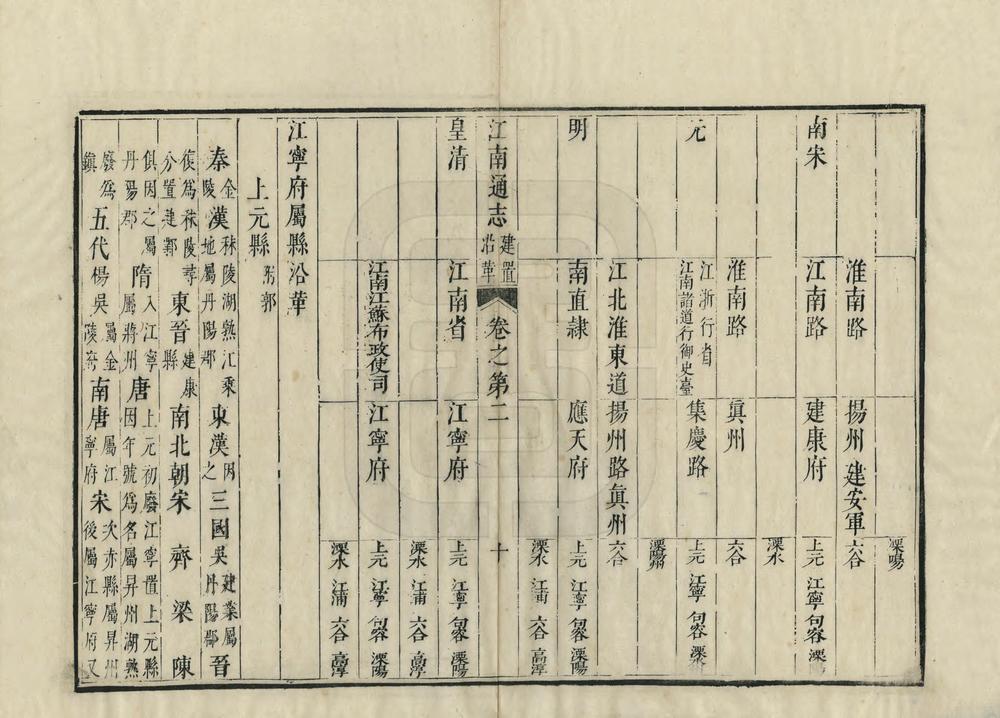 溧陽
淮南路 揚州 建安軍 六合
南宋 江南路 建康府 上元 江寧 句容 溧
溧水
淮南路 眞州 六合
元 江浙行省 江南諸道行御史臺 集慶路 上元 江寧 句容 溧
溧陽州
江北淮東道 揚州路眞州 六合
明 南直隸 應天府 上元 江寧 句容 溧陽
溧水 江浦 六合 高淳
江南通志 建置沿革 卷之第二 十
皇清 江南省 江寧府 上元 江寧 句容 溧陽
溧水 江浦 六合 高淳
江南江蘇布政使司 江寧府 上元 江寧 句容 溧陽
溧水 江浦 六合 高淳
江寧府屬縣沿革
上元縣 附郭
秦 金陵 漢 秣陵湖熟江乘地屬丹陽郡 東漢 因之 三國吳 建業屬丹陽郡 晉
復爲秣陵尋分置建鄴 東晉 建康縣 南北朝宋 齊 梁 陳
俱因之屬丹陽郡 隋 入江寧屬蔣州 唐 上元初廢江寧置上元縣因年號爲名屬昇州湖熟
廢爲鎭 五代 楊吳屬金陵府 南唐 屬江寧府 宋 次赤縣屬昇州後屬江寧府又